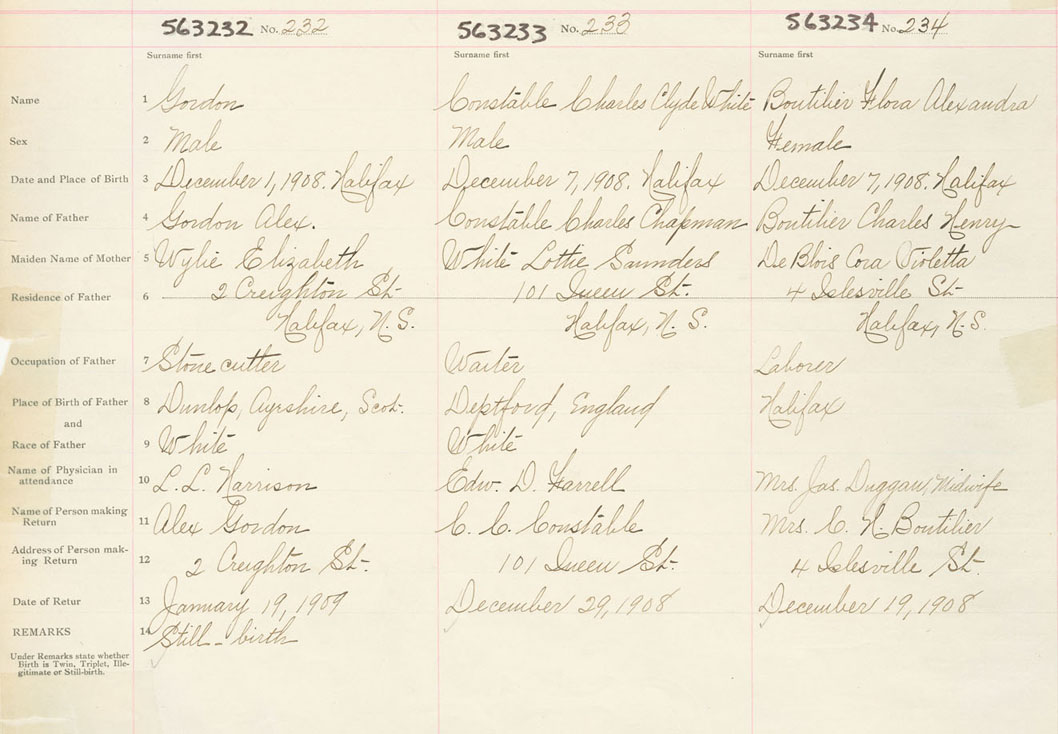 563232 No. 232 563233 No. 233 563234 No. 234
Surname first Surname first Surname first
Name 1 Gordon Constable Charles Clyde White Boutilier Flora Alexandra
Sex 2 Male Male Female
Date and Place of Birth 3 December 1, 1908. Halifax December 7, 1908. Halifax December 7, 1908. Halifax
Name of Father 4 Gordon Alex. Constable Charles Chapman Boutilier Charles Henry
Maiden Name of Mother 5 Wylie Elizabeth White Lottie Saunders De Blois Cora Violetta
Residence of Father 6 2 Creighton St. 101 Queen St. 4 Islesville St.
Halifax, N.S. Halifax, N.S. Halifax, N.S.
Occupation of Father 7 Stone cutter Waiter Laborer
Place of Birth of Father 8 Dunlop, Ayrshire, Scot. Deptford, England Halifax
and
Race of Father 9 White White
Name of Physician in
attendance 10 L. L. Harrison Edw. D. Farrell Mrs. Jas. Duggan, Midwife
Name of Person making
Return 11 Alex Gordon C. C. Constable Mrs. C. H. Boutilier
Address of Person mak-
ing Return 12 2 Creighton St. 101 Queen St. 4 Islesville St.
Date of Retur 13 January 19, 1909 December 29, 1908 December 19, 1908
REMARKS 14 Still-birth
Under Remarks state whether
Birth is Twin, Triplet, Ille-
gitimate or Still-birth.